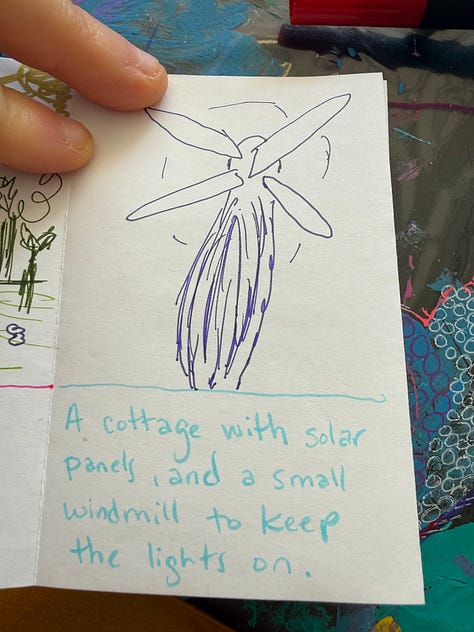 A cottage with solar
panels, and a small
windmill to keep
the lights on.